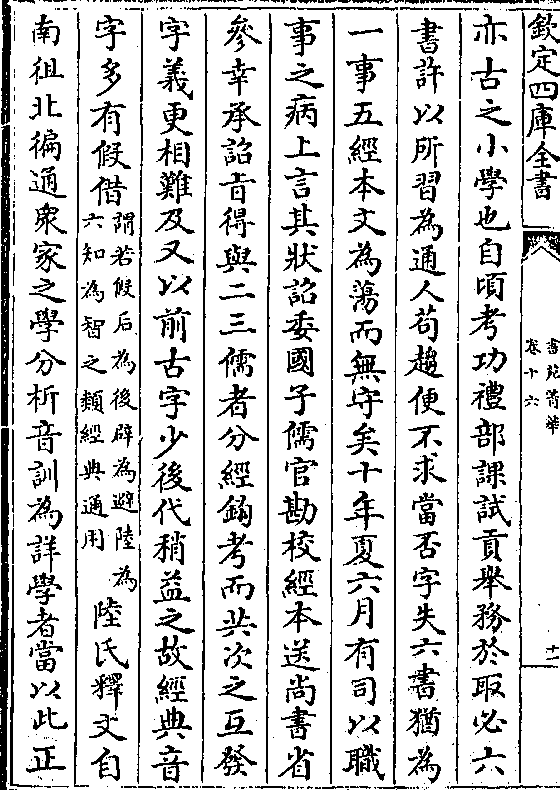 欽定四庫全書
書苑菁華
卷十六
十一
亦古之小學也自頃考功禮部課試貢舉務於取必六
書許以所習為通人苟趨便不求當否字失六書猶為
一事五經本文為蕩而無守矣十年夏六月有司以職
事之病上言其狀詔委國子儒官勘校經本送尚書省
參幸承詔旨得與二三儒者分經鉤考而共次之互發
字義更相難及又以前古字少後代稍益之故經典音
字多有假借謂若假后為後辟為避陸為
六知為智之類經典通用陸氏釋文自
南徂北徧通衆家之學分析音訓為詳學者當以此正